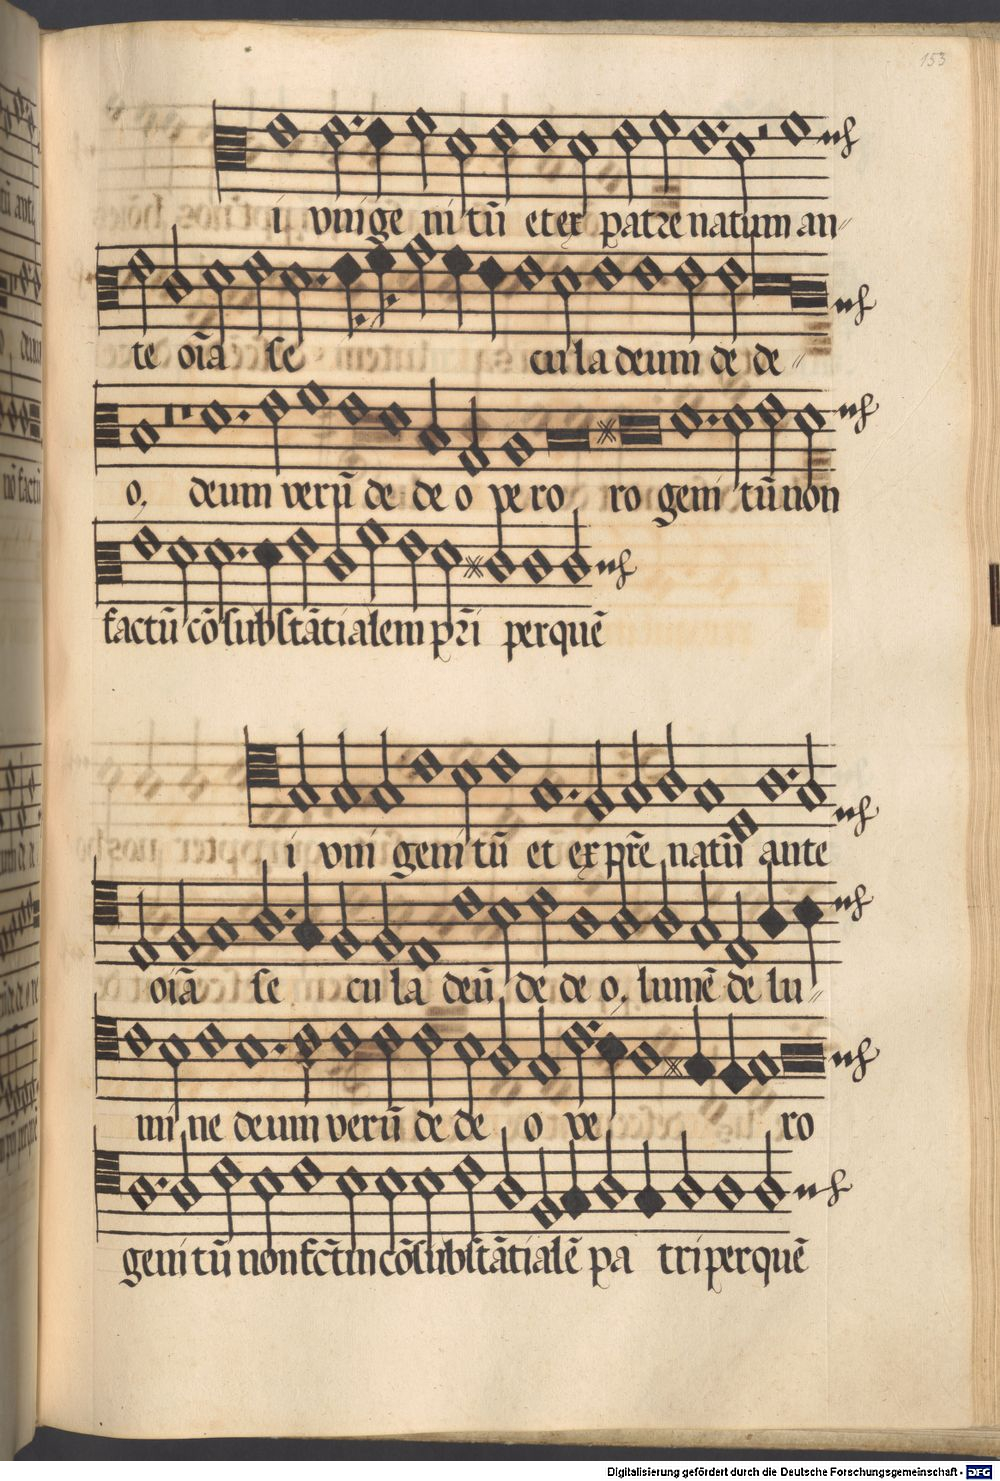 153
i vnigenitū et ex patre natum an
te oīa se cula deum de de
o, deum verū de deo pero ro geni tū non
factū cōsubstātialem pr̄i per quē
i vni geni tū et ex pr̄e natū ante
oīa se cula deū de deo, lumē de lu
mine deum verū de de o ve ro
geni tū non fctm cōsubstātialē pa tri per quē
Digitalisierung gefördert durch die Deutsche Forschungsgemeinschaft - DFG